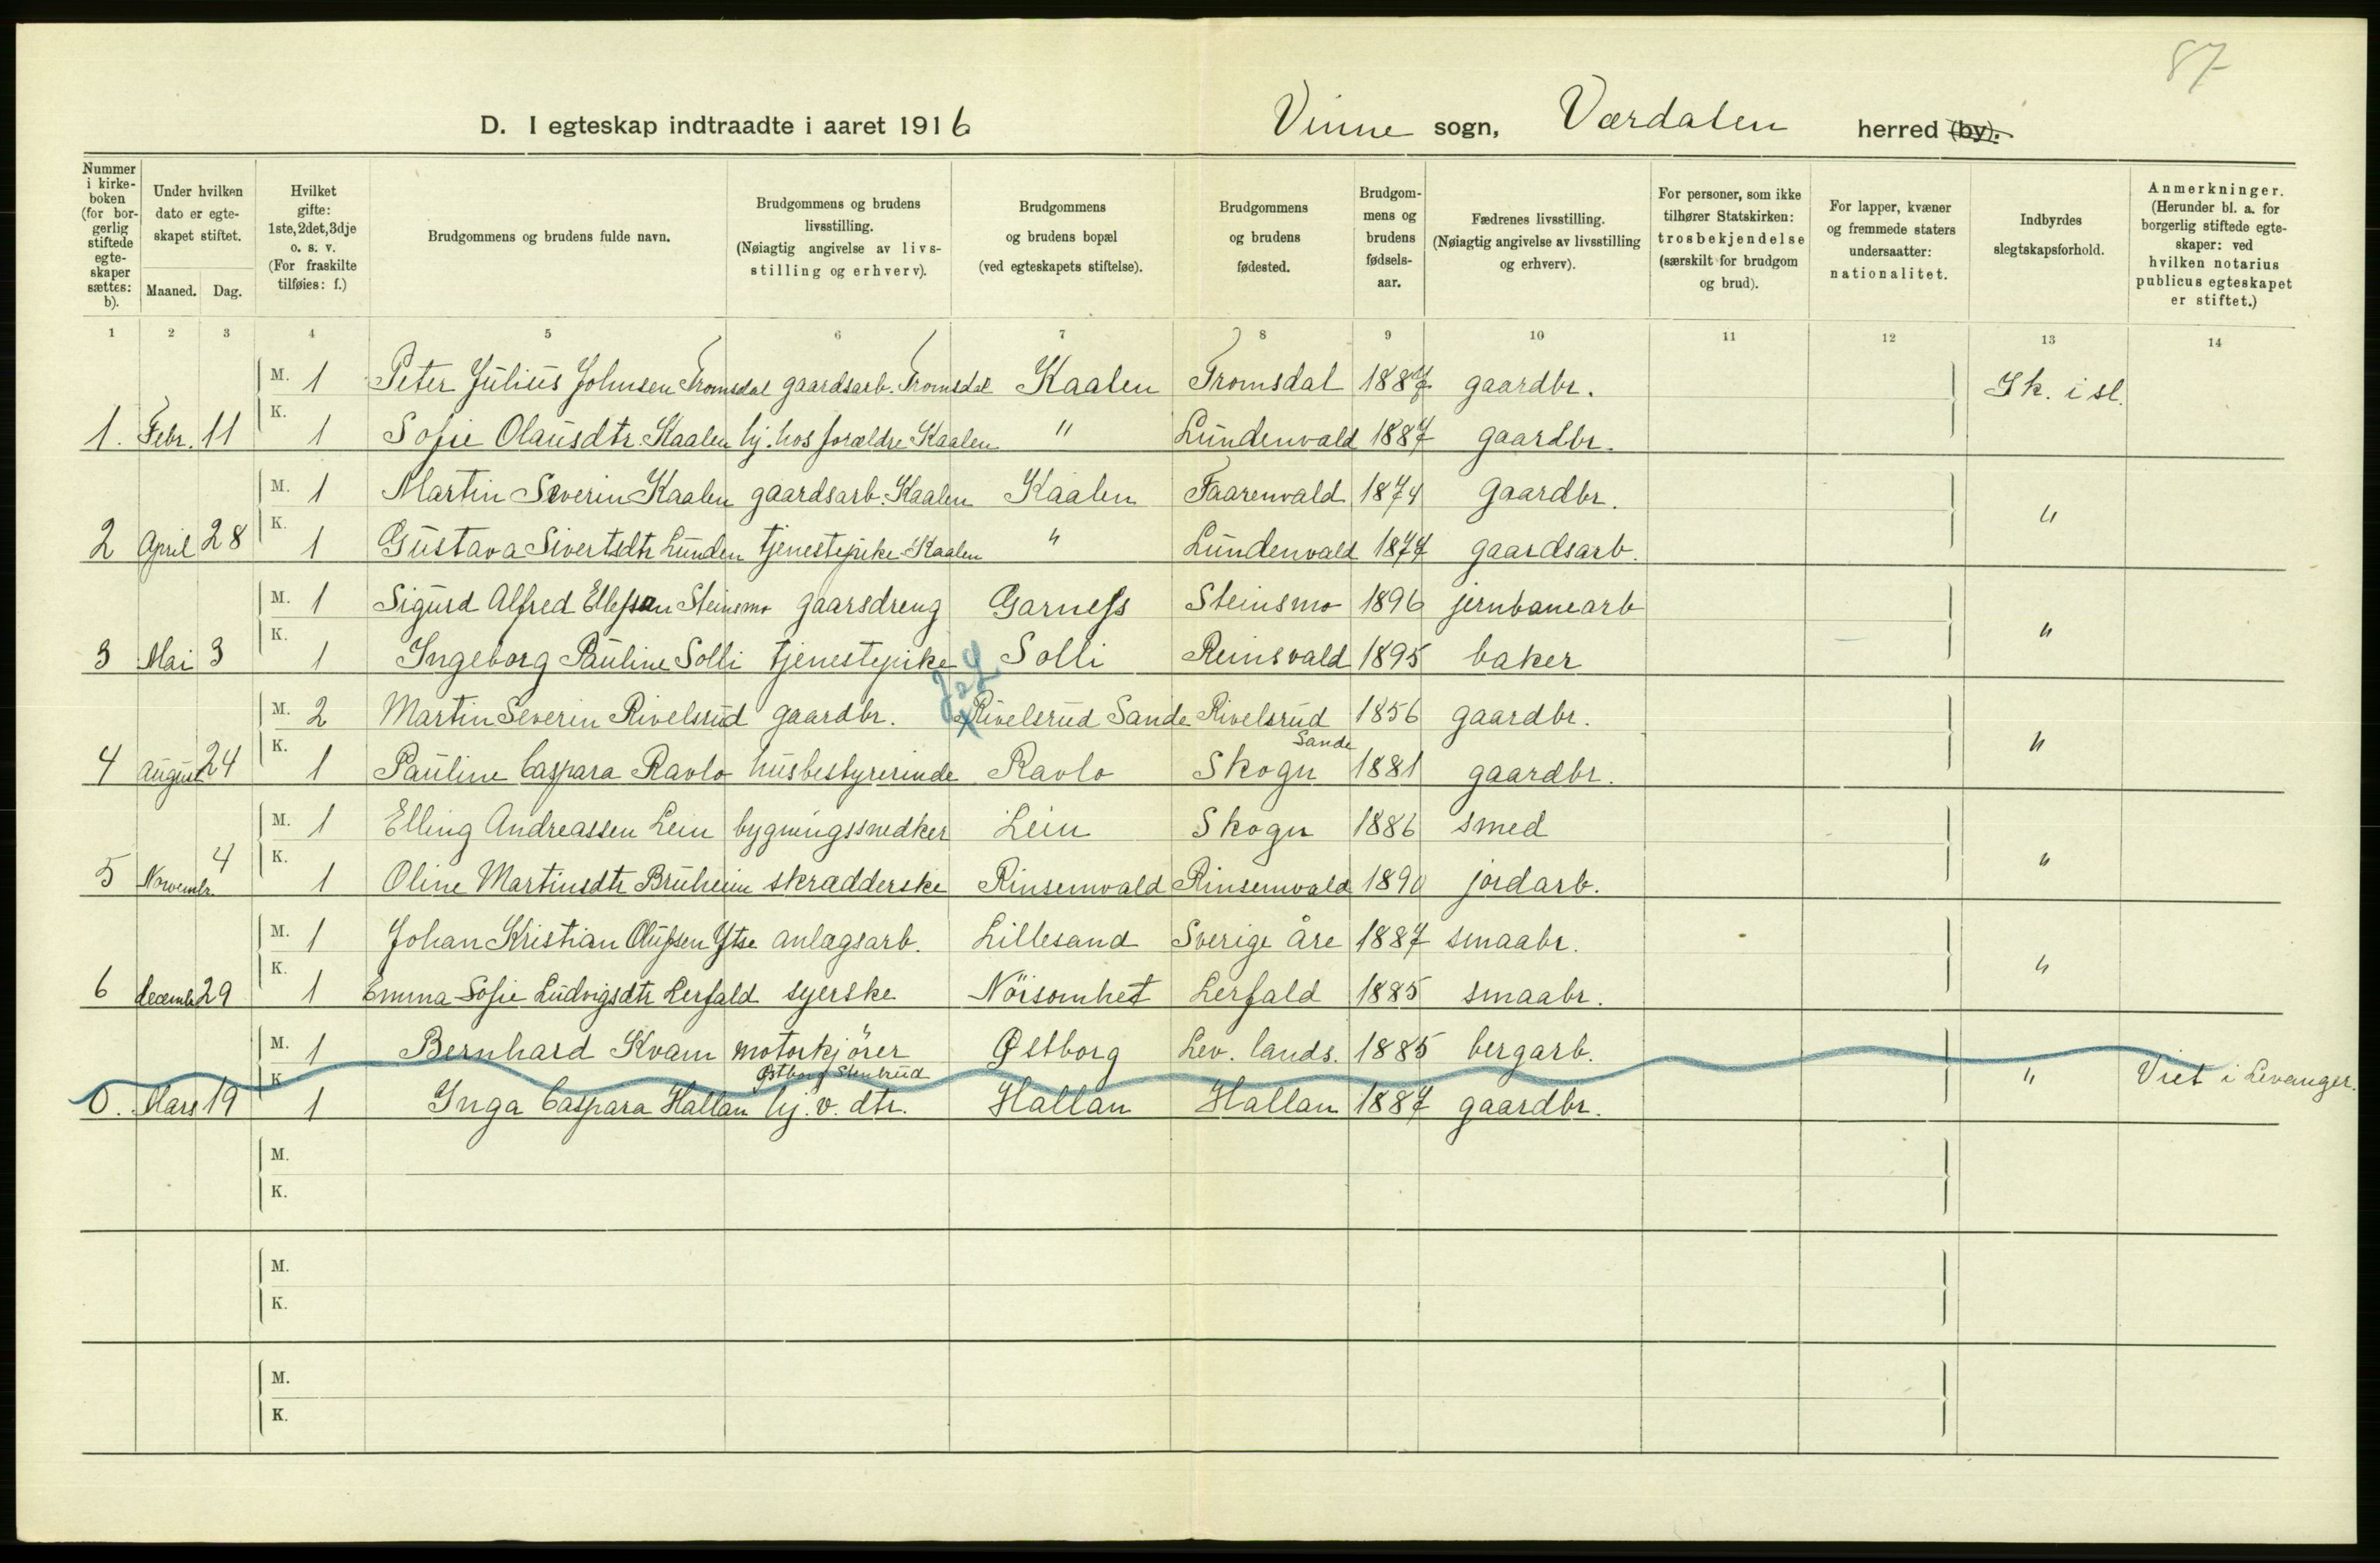 87
D. I egteskap indtraadte i aaret 1916 Vinne sogn, Værdalen herred (by).
Nummer i kirke-boken (for bor-gerlig stiftede egte-skaper sættes: b).
Under hvilken dato er egte-skapet stiftet.
Maaned. Dag.
Hvilket gifte: 1ste, 2det, 3dje o. s. v. (For fraskilte tilføies: f.)
Brudgommens og brudens fulde navn.
Brudgommens og brudens livsstilling. (Nøiagtig angivelse av livs-stilling og erhverv).
Brudgommens og brudens bopæl (ved egteskapets stiftelse).
Brudgommens og brudens fødested.
Brudgom-mens og brudens fødsels-aar.
Fædrenes livsstilling. (Nøiagtig angivelse av livsstilling og erhverv).
For personer, som ikke tilhører Statskirken: trosbekjendelse (særskilt for brudgom og brud).
For lapper, kvæner og fremmede staters undersaatter: nationalitet.
Indbyrdes slegtskapsforhold.
Anmerkninger. (Herunder bl. a. for borgerlig stiftede egte-skaper: ved hvilken notarius publicus egteskapet er stiftet.)
1 2 3 4 5 6 7 8 9 10 11 12 13 14
M. 1 Peter Julius Johnsen Tromsdal gaardsarb. Tromsdal Kaalen Tromsdal gaardbr. Ik. i sl.
1. Febr. 11 K. 1 Sofie Olausdtr. Kaalen hj. hos forældre Kaalen " Lundenvald 1887 gaardbr.
M. 1 Martin Severin Kaalen gaardsarb. Kaalen Kaalen Faarenvald 1874 gaardbr. "
2 April 28 K. 1 Gustava Sivertsdtr Lunden tjenestepike Kaalen " Lundenvald 1877 gaardsarb.
M. 1 Sigurd Alfred Ellefsen Steinsmo gaarsdreng Garness Steinsmo 1896 jernbanearb "
3 Mai 3 K. 1 Ingeborg Pauline Solli tjenestepike Solli Reinsvald 1895 baker
M. 2 Martin Severin Rivelsrud gaardbr. x Rivelsrud Sande Rivelsrud Sande 1856 gaardbr. "
4 August 24 K. 1 Pauline Caspara Ravlo husbestyrerinde Ravlo Skogn 1881 gaardbr.
M. 1 Elling Andreassen Lein bygningssnedker Lein Skogn 1886 smed "
5 Novembr. 4 K. 1 Oline Martinsdtr Bruheim skrædderske Rinsemvald Rinsemvald 1890 jordarb.
M. 1 Johan Kristian Olufsen Ytse anlægsarb. Lillesand Sverige Åre 1887 smaabr. "
6 decemb 29 K. 1 Emma Sofie Ludvigsdtr Lerfald syerske Nörsomhet Lerfald 1885 smaabr.
M. 1 Bernhard Kvam motorkjörer Østborg Lev. lands. 1885 bergarb. " Viet i Levanger.
Østborg
0. Mars 19 K. 1 Inga Caspara Hallan hj. v. dtr. Hallan Hallan 1887 gaardbr.
M.
K.
M.
K.
M.
K.